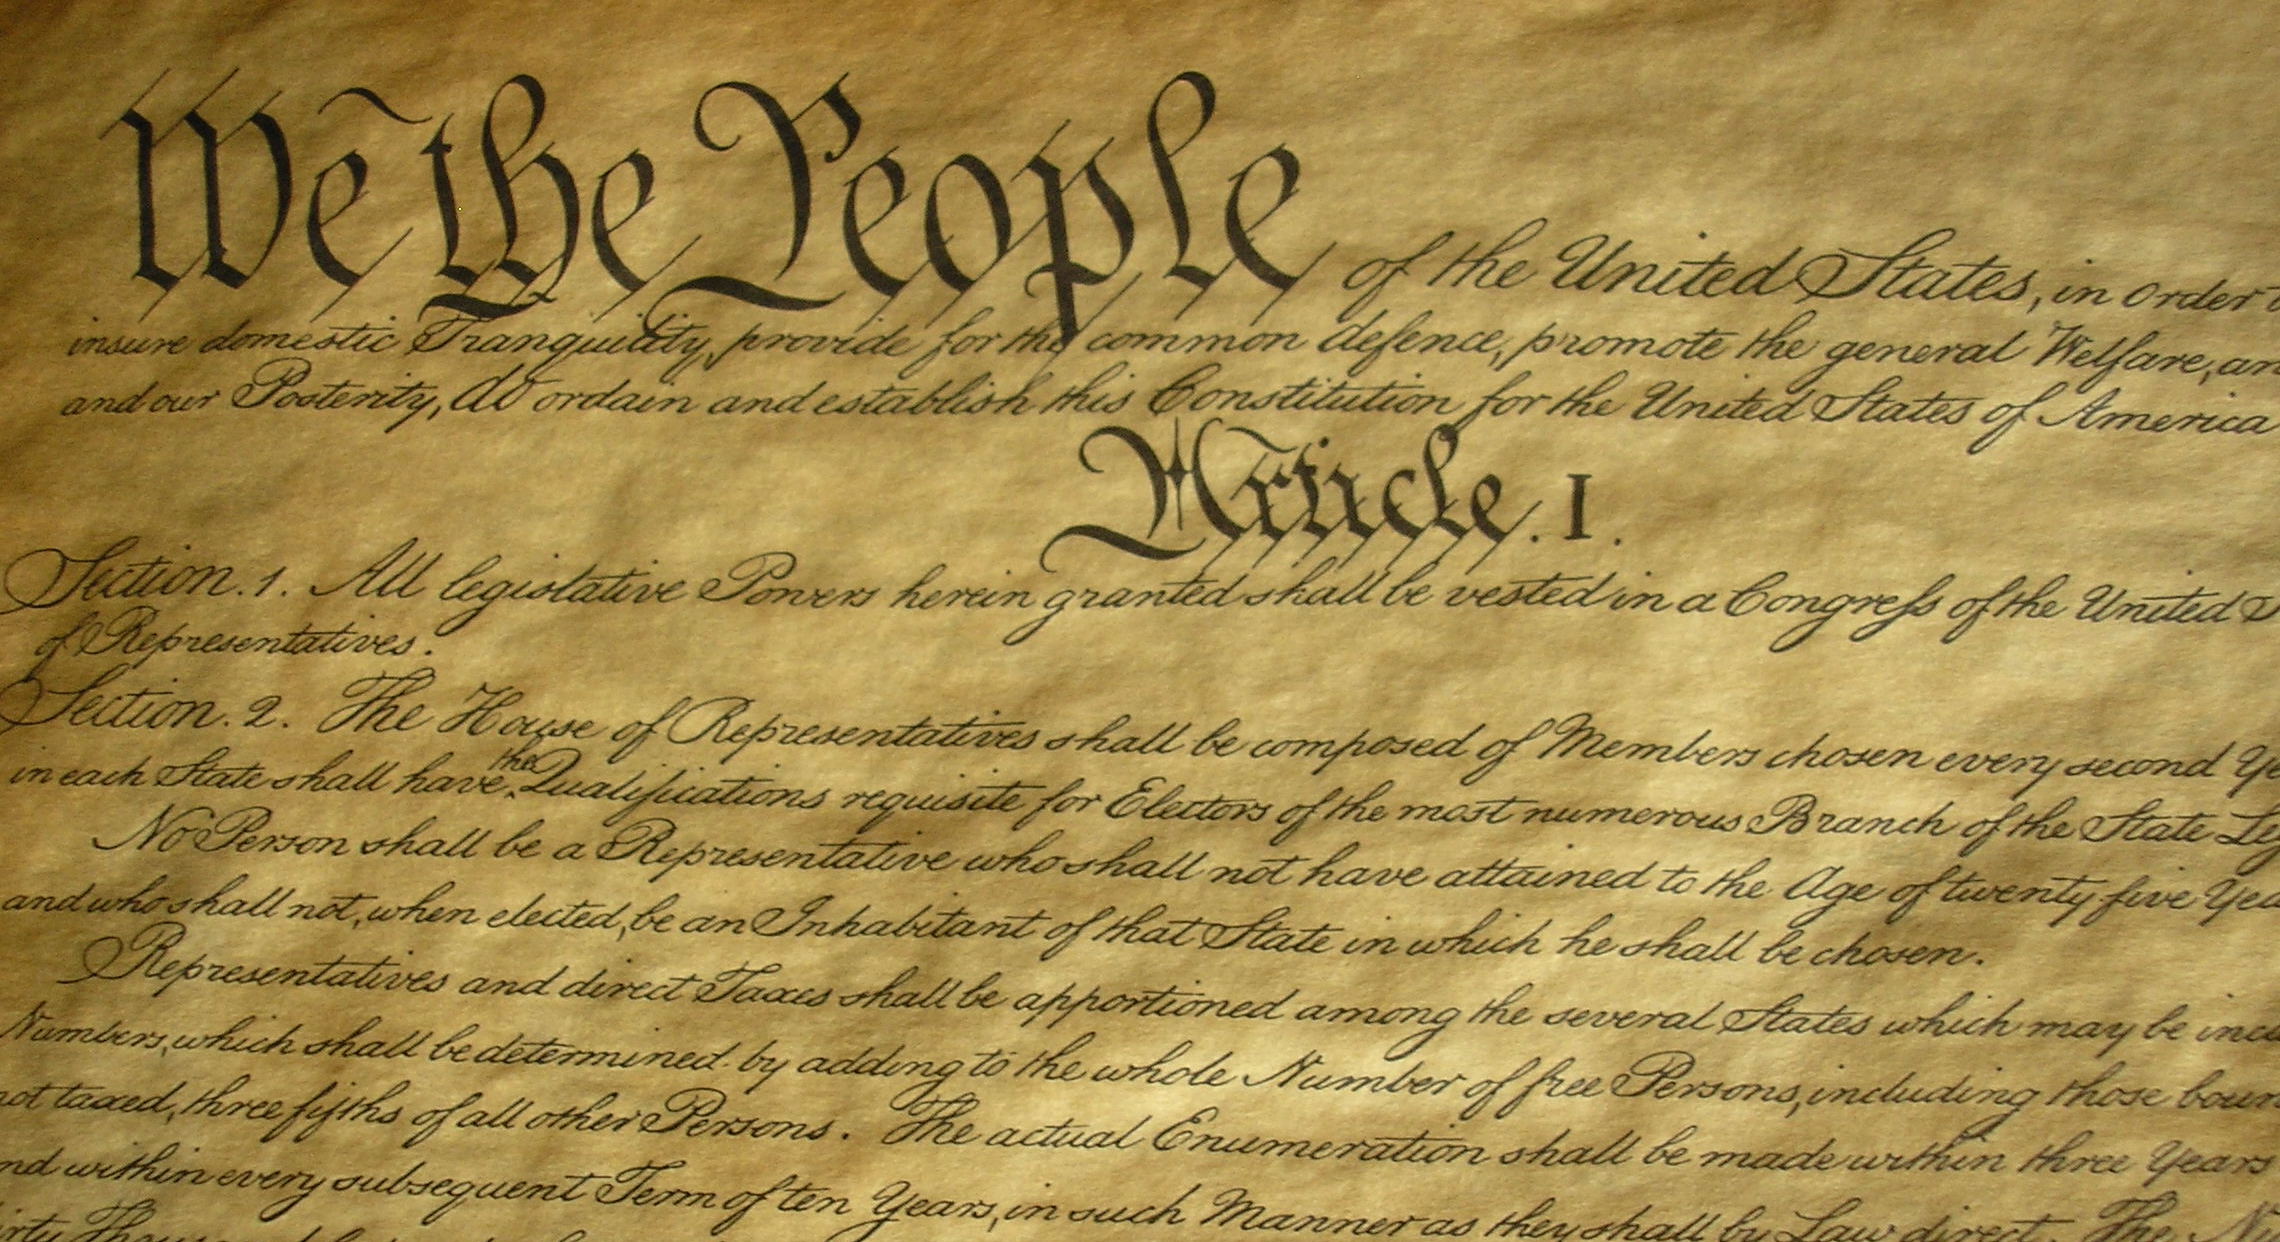 We the People of the United States, in Order
insure domestic Tranquility, provide for the common defence, promote the general Welfare, an
and our Posterity, do ordain and establish this Constitution for the United States of America
Article. I.
Section. 1. All legislative Powers herein granted shall be vested in a Congress of the United S
of Representatives.
Section. 2. The House of Representatives shall be composed of Members chosen every second Ye
in each State shall have the Qualifications requisite for Electors of the most numerous Branch of the State Leg
No Person shall be a Representative who shall not have attained to the Age of twenty five Yea
and who shall not, when elected, be an Inhabitant of that State in which he shall be chosen.
Representatives and direct Taxes shall be apportioned among the several States which may be inclu
Numbers, which shall be determined by adding to the whole Number of free Persons, including those boun
not taxed, three fifths of all other Persons. The actual Enumeration shall be made within three Years
nd within every subsequent Term of ten Years, in such Manner as they shall by Law direct. The Nu
irty Thous